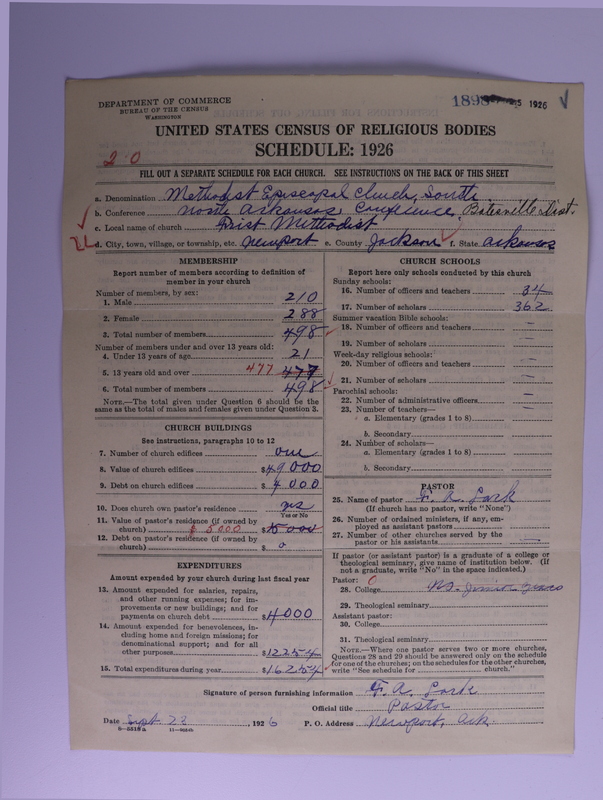 DEPARTMENT OF COMMERCE
BUREAU OF THE CENSUS
WASHINGTON
1926
UNITED STATES CENSUS OF RELIGIOUS BODIES
SCHEDULE: 1926
20
FILL OUT A SEPARATE SCHEDULE FOR EACH CHURCH. SEE INSTRUCTIONS ON THE BACK OF THIS SHEET
a. Denomination Methodist Episcopal Church, South
b. Conference North Arkansas Conference, Batesville Dist.
c. Local name of church First Methodist
d. City, town, village, or township, etc. Newport e. County Jackson f. State Arkansas
MEMBERSHIP
Report number of members according to definition of member in your church
Number of members, by sex:
1. Male 210
2. Female 288
3. Total number of members 498
Number of members under and over 13 years old:
4. Under 13 years of age 21
5. 13 years old and over 477 477
6. Total number of members 498
NOTE.—The total given under Question 6 should be
same as the total of males and females given under Question 3.
CHURCH BUILDINGS
See instructions, paragraphs 10 to 12
7. Number of church edifices one
8. Value of church edifices $49000
9. Debt on church edifices $4000
10. Does church own pastor's residence? yes
Yes or No
11. Value of pastor's residence (if owned by
church) $5000 $
12. Debt on pastor's residence (if owned by
church) $ 0
EXPENDITURES
Amount expended by your church during last fiscal year
13. Amount expended for salaries, repairs,
and other running expenses; for im-
provements or new buildings; and for
payments on church debt $4000
14. Amount expended for benevolences, in-
cluding home and foreign missions; for
denominational support; and for all
other purposes $12254
15. Total expenditures during year $16254
CHURCH SCHOOLS
Report here only schools conducted by this church
Sunday schools:
16. Number of officers and teachers 34
17. Number of scholars 362
Summer vacation Bible schools:
18. Number of officers and teachers —
19. Number of scholars —
Week-day religious schools:
20. Number of officers and teachers —
21. Number of scholars —
Parochial schools:
22. Number of administrative officers
23. Number of teachers—
a. Elementary (grades 1 to 8)
b. Secondary
24. Number of scholars—
a. Elementary (grades 1 to 8)
b. Secondary
PASTOR
25. Name of pastor F. A. Lark
(If church has no pastor, write "None")
26. Number of ordained ministers, if any, em-
ployed as assistant pastors
27. Number of other churches served by the
pastor or his assistants
If pastor (or assistant pastor) is a graduate of a college or
theological seminary, give name of institution below. (If
not a graduate, write "No" in the space indicated.)
Pastor: 0
28. College
29. Theological seminary
Assistant pastor:
30. College
31. Theological seminary
NOTE.—Where one pastor serves two or more churches,
Questions 28 and 29 should be answered only on the schedule
for one of the churches; on the schedules for the other churches,
write "See schedule for church."
Signature of person furnishing information F. A. Lark
Official title Pastor
Date Sept 23, 1926 P. O. Address Newport, Ark.